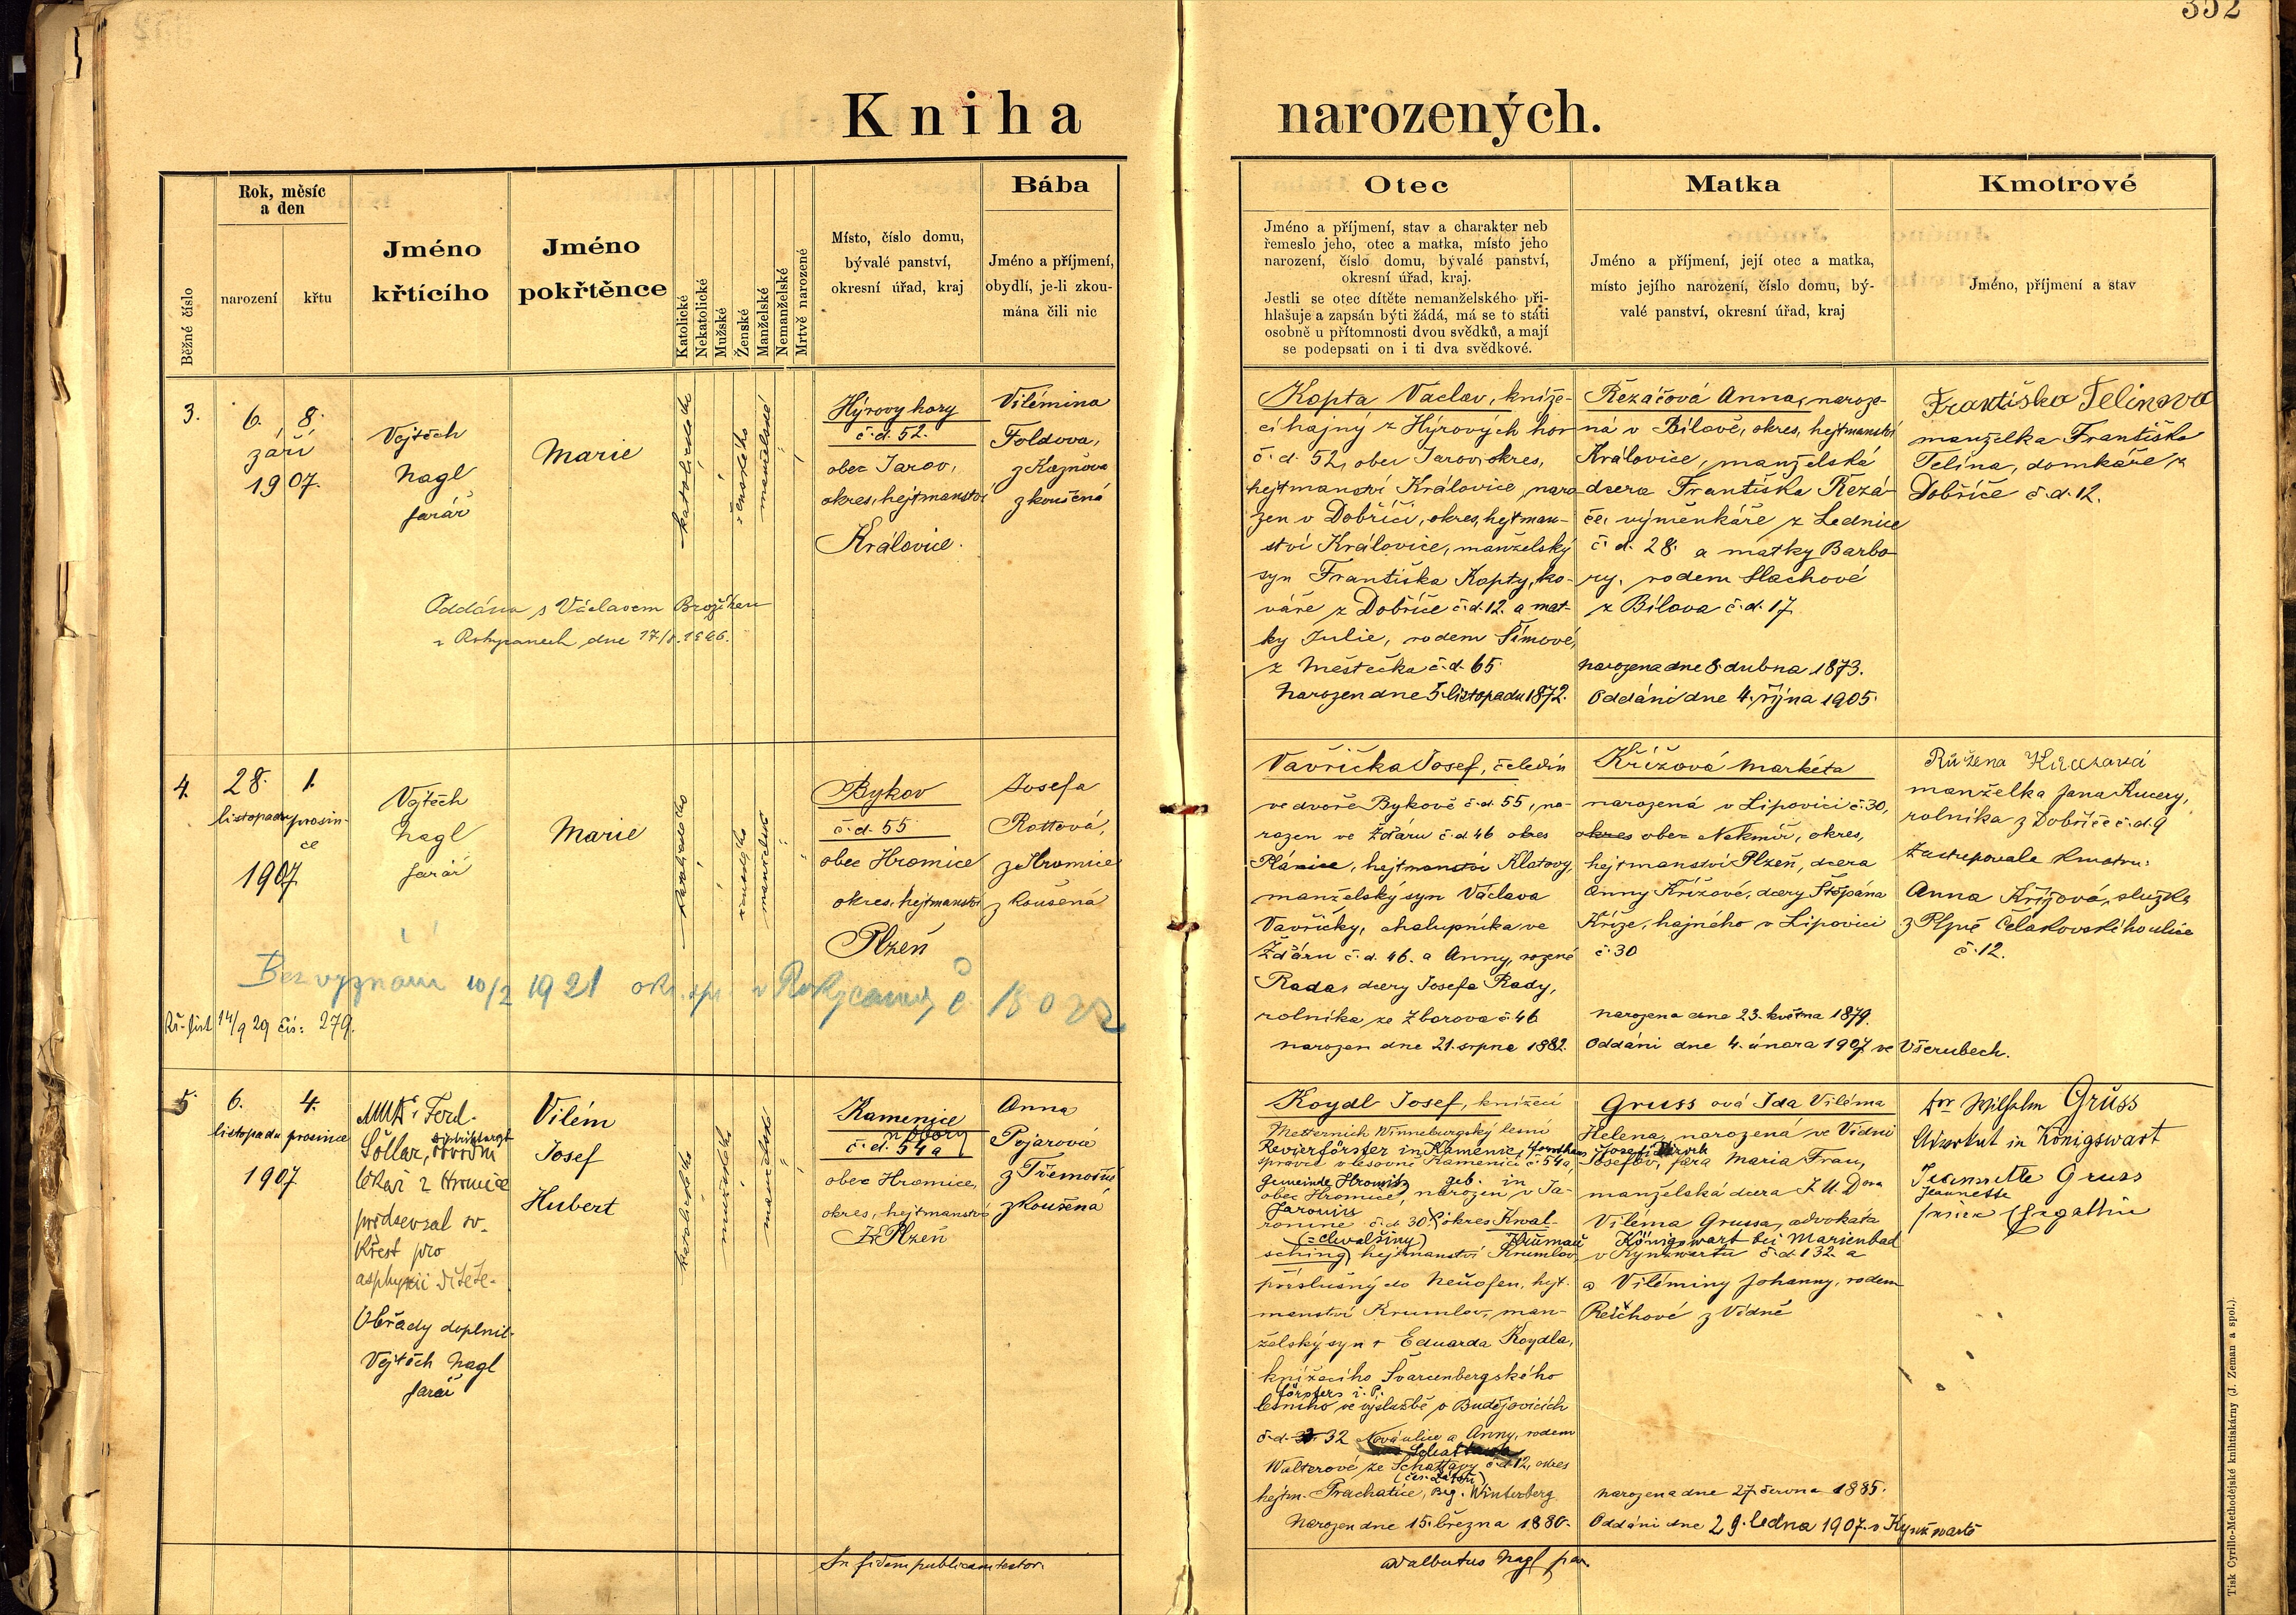 352
Kniha narozených.
Běžné číslo
Rok, měsíc
a den
narození
křtu
Jméno
křtícího
Jméno
pokřtěnce
Katolické
Nekatolické
Mužské
Ženské
Manželské
Nemanželské
Mrtvě narozené
Místo, číslo domu,
bývalé panství,
okresní úřad, kraj
Bába
Jméno a příjmení,
obydlí, je-li zkou-
mána čili nic
Otec
Jméno a příjmení, stav a charakter neb
řemeslo jeho, otec a matka, místo jeho
narození, číslo domu, bývalé panství,
okresní úřad, kraj.
Jestli se otec dítěte nemanželského při-
hlašuje a zapsán býti žádá, má se to státi
osobně u přítomnosti dvou svědků, a mají
se podepsati on i ti dva svědkové.
Matka
Jméno a příjmení, její otec a matka,
místo jejího narození, číslo domu, bý-
valé panství, okresní úřad, kraj
Kmotrové
Jméno, příjmení a stav
3.
6. 8.
září
1907.
Vojtěch
Nagl
farář
Marie
katolického
ženského
manželské
Hýrovy hory
č. d. 52.
obec Jarov,
okres, hejtmanství
Kralovice.
Vilémina
Foldova,
z Kaznova
zkoušená
Oddána s Václavem Brožíkem
v Rokycanech, dne
Kopta Vaclav, kníže-
cí hajný z Hýrových hor
č. d. 52, obec Jarov, okres,
hejtmanství Kralovice, naro
zen v Dobříči, okres, hejtman-
ství Kralovice, manželský
syn Františka Kopty, ko-
váře z Dobříče č. d. 12. a mat-
ky Julie, rodem Šímové,
z Městečka č. d. 65.
Narozen dne 5. listopadu 1872.
Řezáčová Anna, naroze-
ná v Bílově, okres, hejtmanství
Kralovice, manželská
dcera Františka Řezá-
če, výměnkáře z Lednice
č. d. 28. a matky Barbo-
ry, rodem Hachové
z Bílova č. d. 17.
Narozena dne 8. dubna 1873.
Oddáni dne 4. října 1905.
Františka Telinova
manželka Františka
Telína, domkáře z
Dobříče č. d. 12.
4.
28. 1.
listopadu prosin-
ce
1907
Vojtěch
Nagl
farář
Marie
katolického
ženského
manželské
Bykov
č. d. 55
obec Hromice
okres, hejtmanství
Plzeň
Josefa
Rottová,
z Hromice
zkoušená
Bez vyznání 10/2 1921 okr. v Rokycanech č
Kř. list 14/9 29 čís: 279.
Vavřička Josef, čeledín
ve dvoře Bykově č. d. 55, na-
rozen ve Žďáru č. d. 46 okres
Plánice, hejtmanství Klatovy,
manželský syn Václava
Vavřičky, chalupníka ve
Žďáru č. d. 46. a Anny, rozené
Rada, dcery Josefa Rady,
rolníka ze Zborova č. 46
narozen dne 21. srpna 1882.
Křížová Markéta
narozená v Lipovici č. 30,
okres obec Nekmíř, okres,
hejtmanství Plzeň, dcera
Anny Křížové, dcery Štěpána
Kříže, hajného v Lipovici
č. 30
narozena dne 23. května 1879.
Oddáni dne 4. února 1907 ve Všerubech.
Růžena
manželka Jana Kucery,
rolníka z Dobříče č. d. 9
zastupovala kmotru:
Anna Křížová, služka
z Plzně Čelakovského ulice
č. 12.
5.
6. 4.
listopadu prosince
1907
MUDr. Ferd.
Šollar, obvodní
lékař z Hromice
předsevzal sv.
křest pro
asphyxii dítěte.
Obřady doplnil.
Vojtěch Nagl
farář
Vilém
Josef
Hubert
katolického
mužského
manželské
Kamenice
č. d. 54a
obec Hromice,
okres, hejtmanství
Plzeň
Anna
Pojarová
z Třemošné
zkoušená
Koydl Josef, knížecí
Metternich Winneburgský lesní
Revierförster in Kamenic, Forsthaus
správce v lesovně Kamenici č. 54a,
Gemeinde Hromitz geb. in
obec Hromice, narozen v Ja-
Jaronín
ronine č. d. 30. okres Kwal-
(= Chvalšiny) Krumau
sching, hejtmanství Krumlov
příslušný do Neuofen, hejt-
manství Krumlov, man-
želský syn † Eduarda Koydla,
knížecího Švarcenbergského
Försters i. P.
lesního ve výslužbě v Budějovicích
č. d. 32 Nová ulice a Anny, rodem
Walterové ze Schattavy č. d. 12, okres
hejtm. Prachatice, Bez. Winterberg
Narozen dne 15. března 1880.
Gruss ová Ida Viléma
Helena, narozená ve Vídni
Josefov, fara Maria Frau,
manželská dcera J. U. Dra
Viléma Grussa, advokáta
Königswart bei Marienbad
v Kynžwartu č. d. 132 a
a Viléminy Johanny, rodem
Reichové z Vídně
narozena dne 27. června 1885.
Oddáni dne 29. ledna 1907. v Kynžwartě
Dr Wilhelm Gruss
Advokat in Königswart
Jeannette Gruss
Jeannette
In fidem publicam testor.
Adalbertus Nagl par.
Tisk Cyrillo-Methodějské knihtiskárny (J. Zeman a spol.).